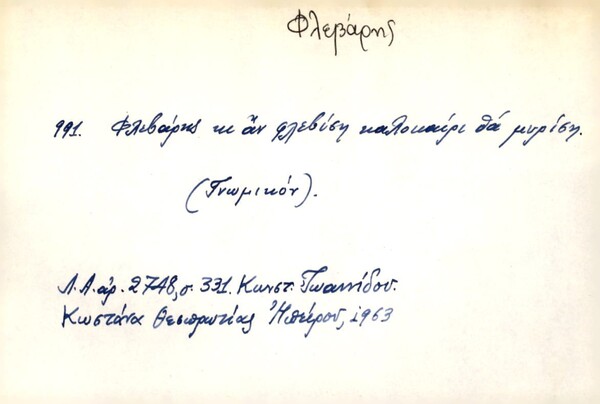 Φλεβάρης
991. Φλεβάρης κι ἂν φλεβίση καλοκαίρι θά μυρίση.
(Γνωμικόν).
Λ.Α. ἀρ. 2748, σ. 331. Κωνστ. Ἰωαννίδου.
Κωστάνα Θεσπρωτίας Ἠπείρου, 1963